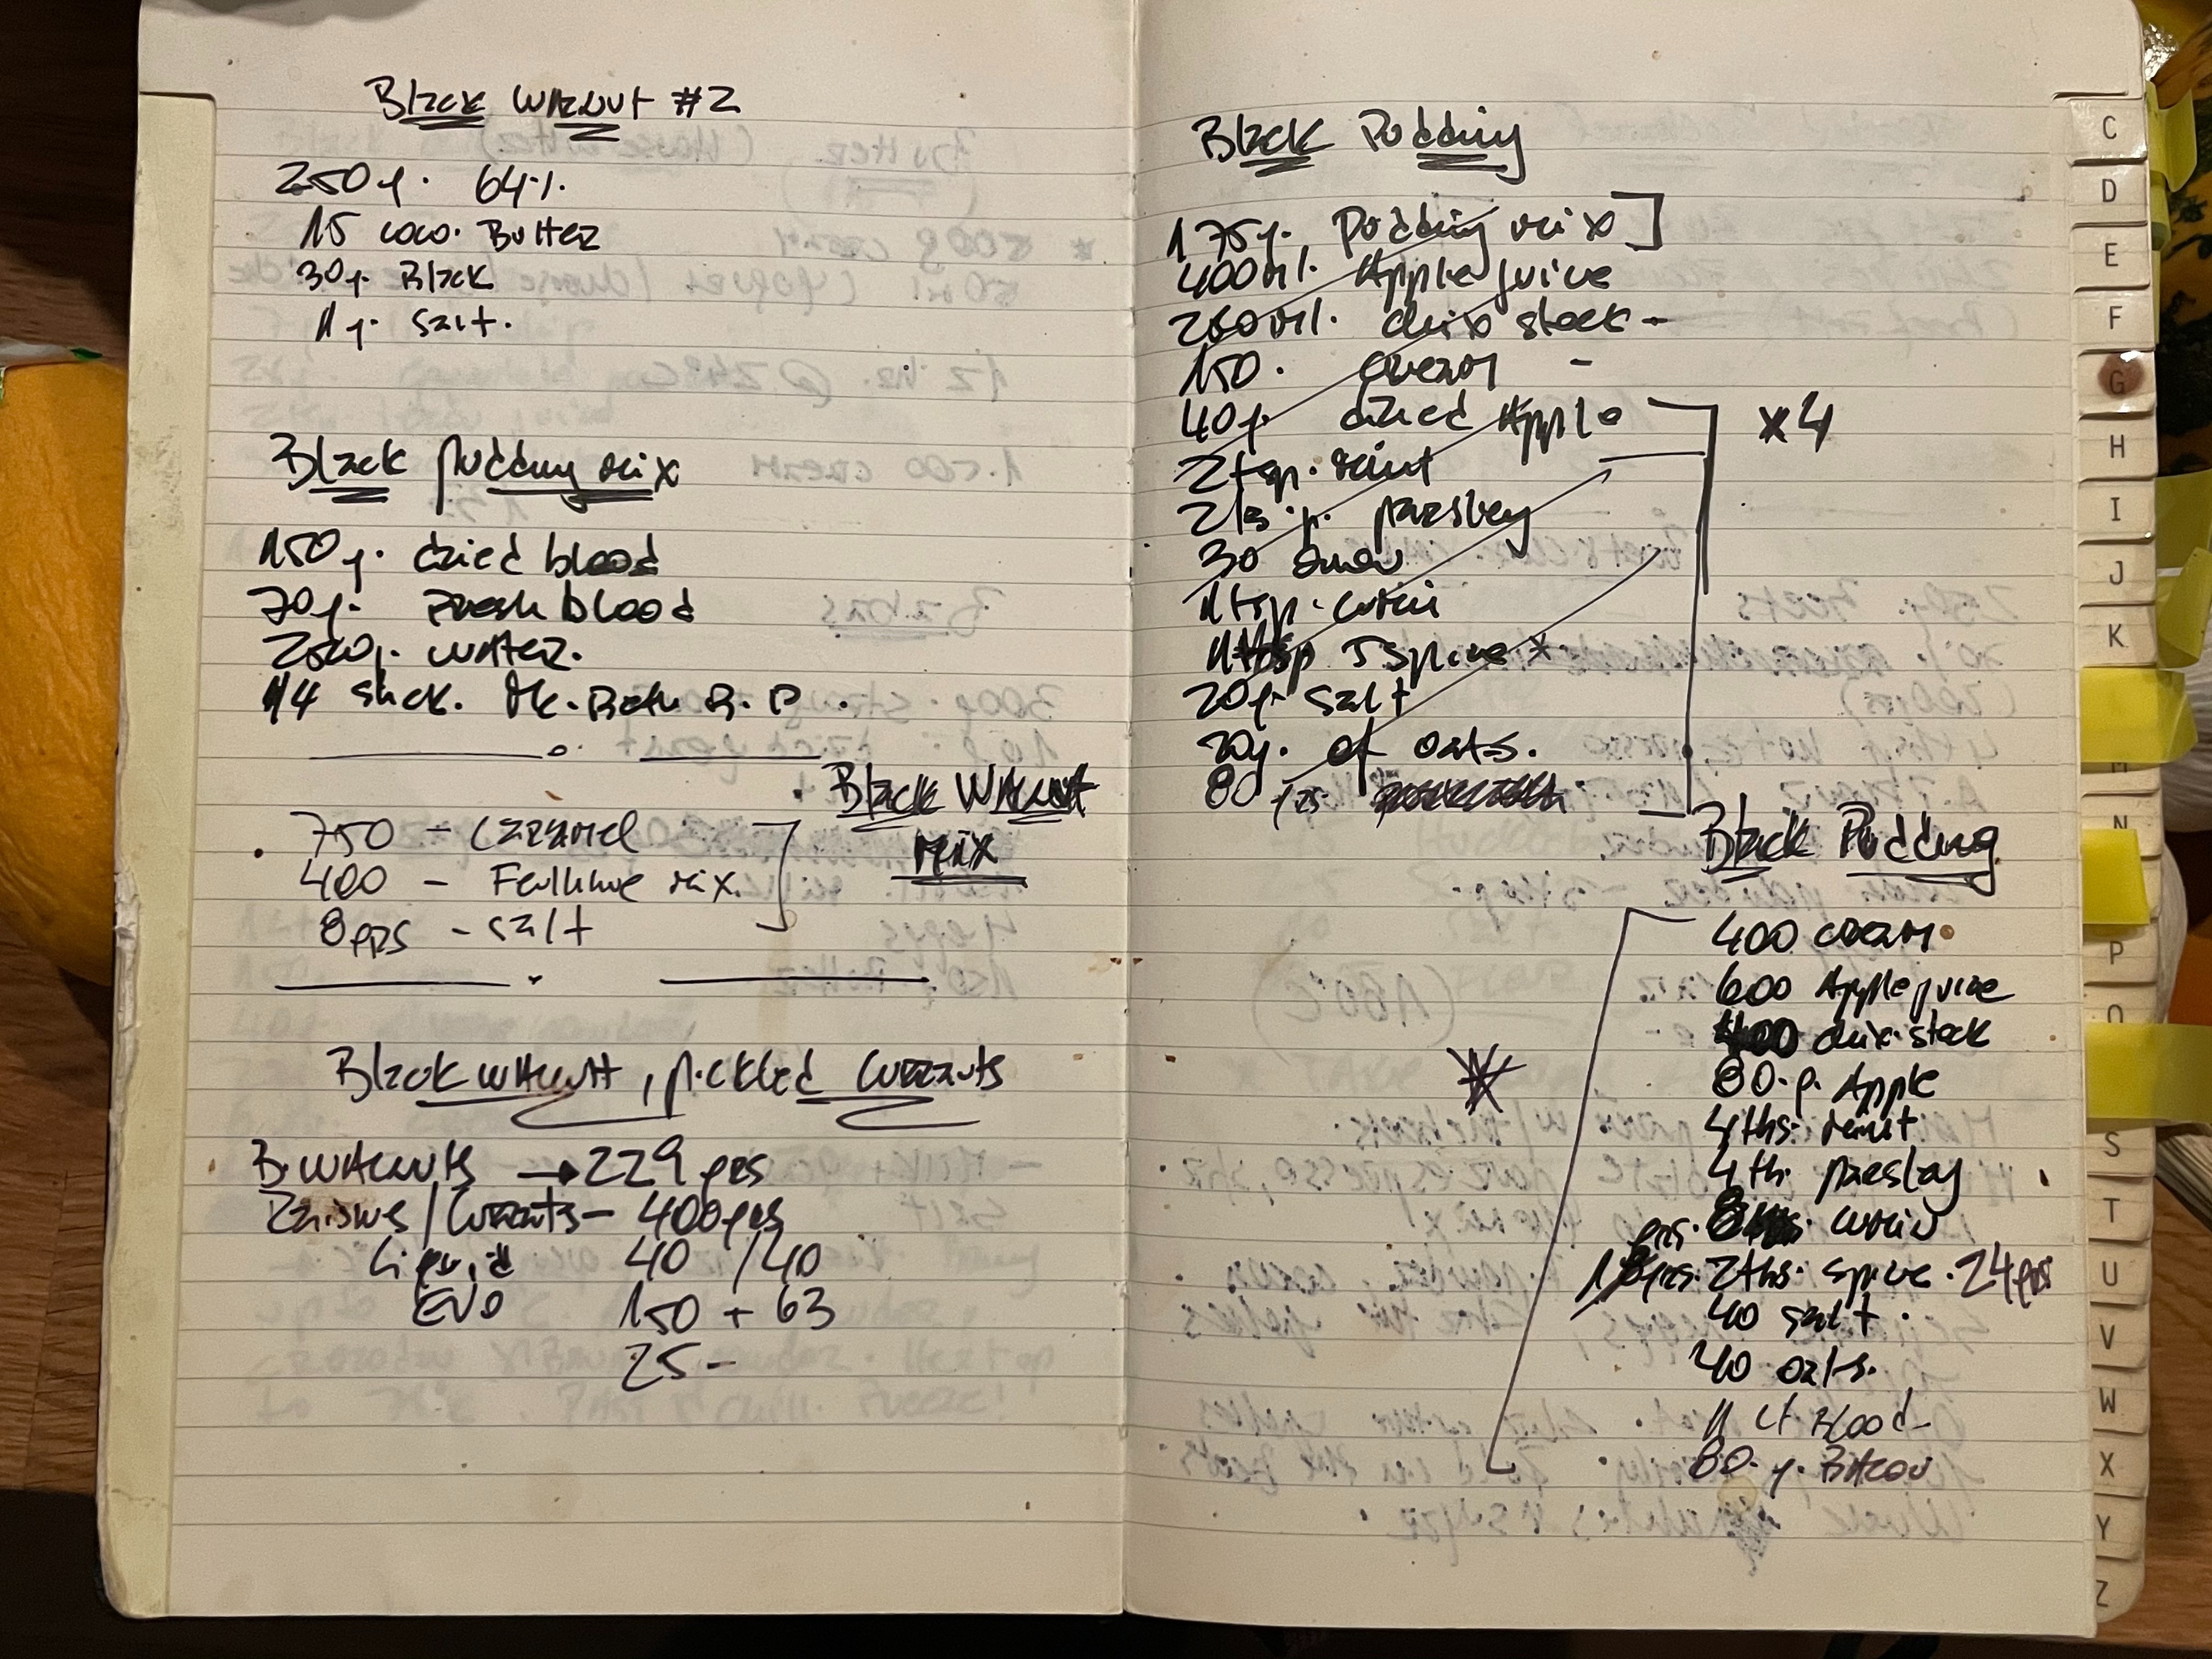 Black Walnut #2
250g. 64%.
15 coco. Butter
30g. Black
1g. Salt.
Black pudding mix
150g. dried blood
70g. Fresh blood
250g. water.
1/4 stick.
Black Walnut
mix
750 - Caramel
400 - mix.
8 grs - salt
Black walnut, pickled currants
B. walnuts → 229 grs
Raisins/Currants - 400 grs
Liquid 40 /40
EVO 150 + 63
25 -
Black Pudding
175g. Pudding mix
400ml. Apple juice
250ml. chix stock -
150. cream -
40g. dried Apple
x4
2 tsp. mint
parsley
30
1 tsp. cumin
1 tbsp 5 spice *
20g. salt
20g. of oats.
80 grs.
Black Pudding
400 cream.
600 Apple juice
400 chix. stock
80. g. Apple
4 tbs. mint
4 tb. parsley
grs. 8 cumin
2 tbs. spice. 24 grs
40 salt.
40 oats.
1 Lt Blood
80. g. Bacon
C
D
E
F
G
H
I
J
K
M
N
O
P
S
T
U
V
W
X
Y
Z